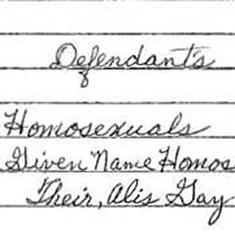 Defendant's
Homosexuals
Given Name Homos
Their, Alis Gay